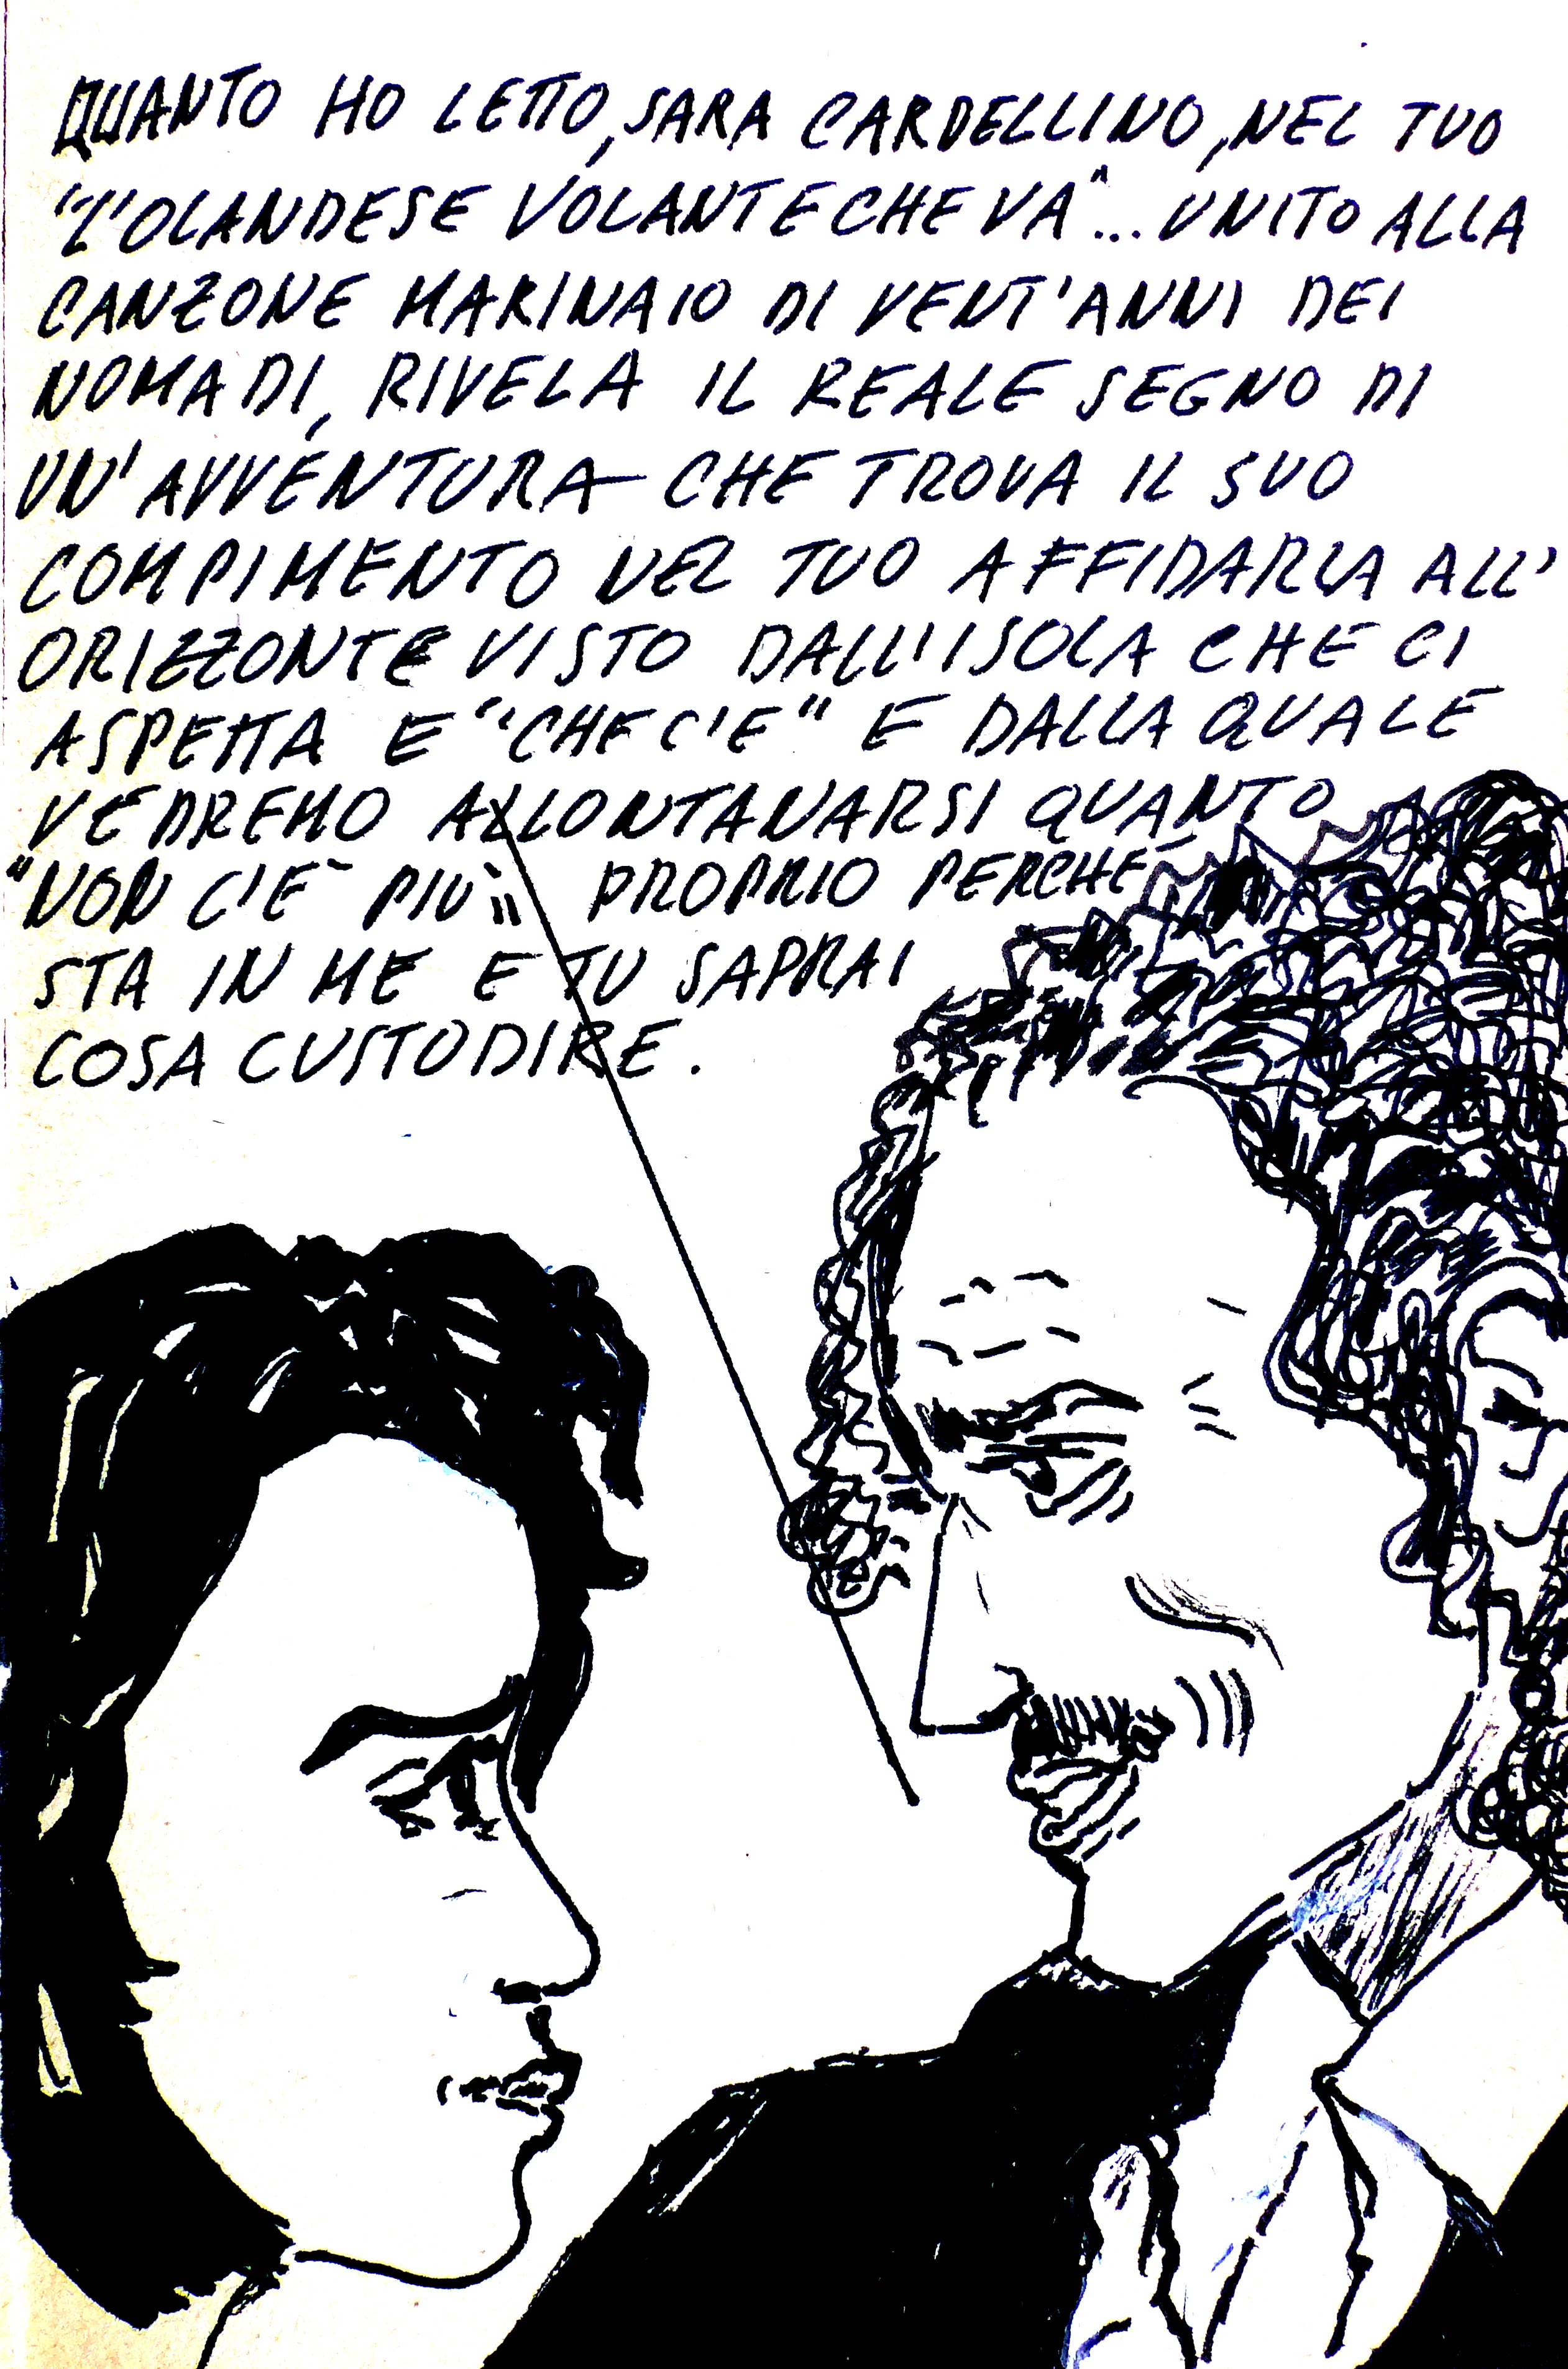 QUANTO HO LETTO, SARA CARDELLINO, NEL TUO
"L'OLANDESE VOLANTE CHE VA"... UNITO ALLA
CANZONE MARINAIO DI VENT'ANNI DEI
NOMADI, RIVELA IL REALE SEGNO DI
UN'AVVENTURA CHE TROVA IL SUO
COMPIMENTO NEL TUO AFFIDARLA ALL'
ORIZZONTE VISTO DALL'ISOLA CHE CI
ASPETTA E "CHE C'E" E DALLA QUALE
VEDREMO ALLONTANARSI QUANTO
"NON C'E' PIU'" PROPRIO PERCHÉ
STA IN ME E TU SAPRAI
COSA CUSTODIRE.